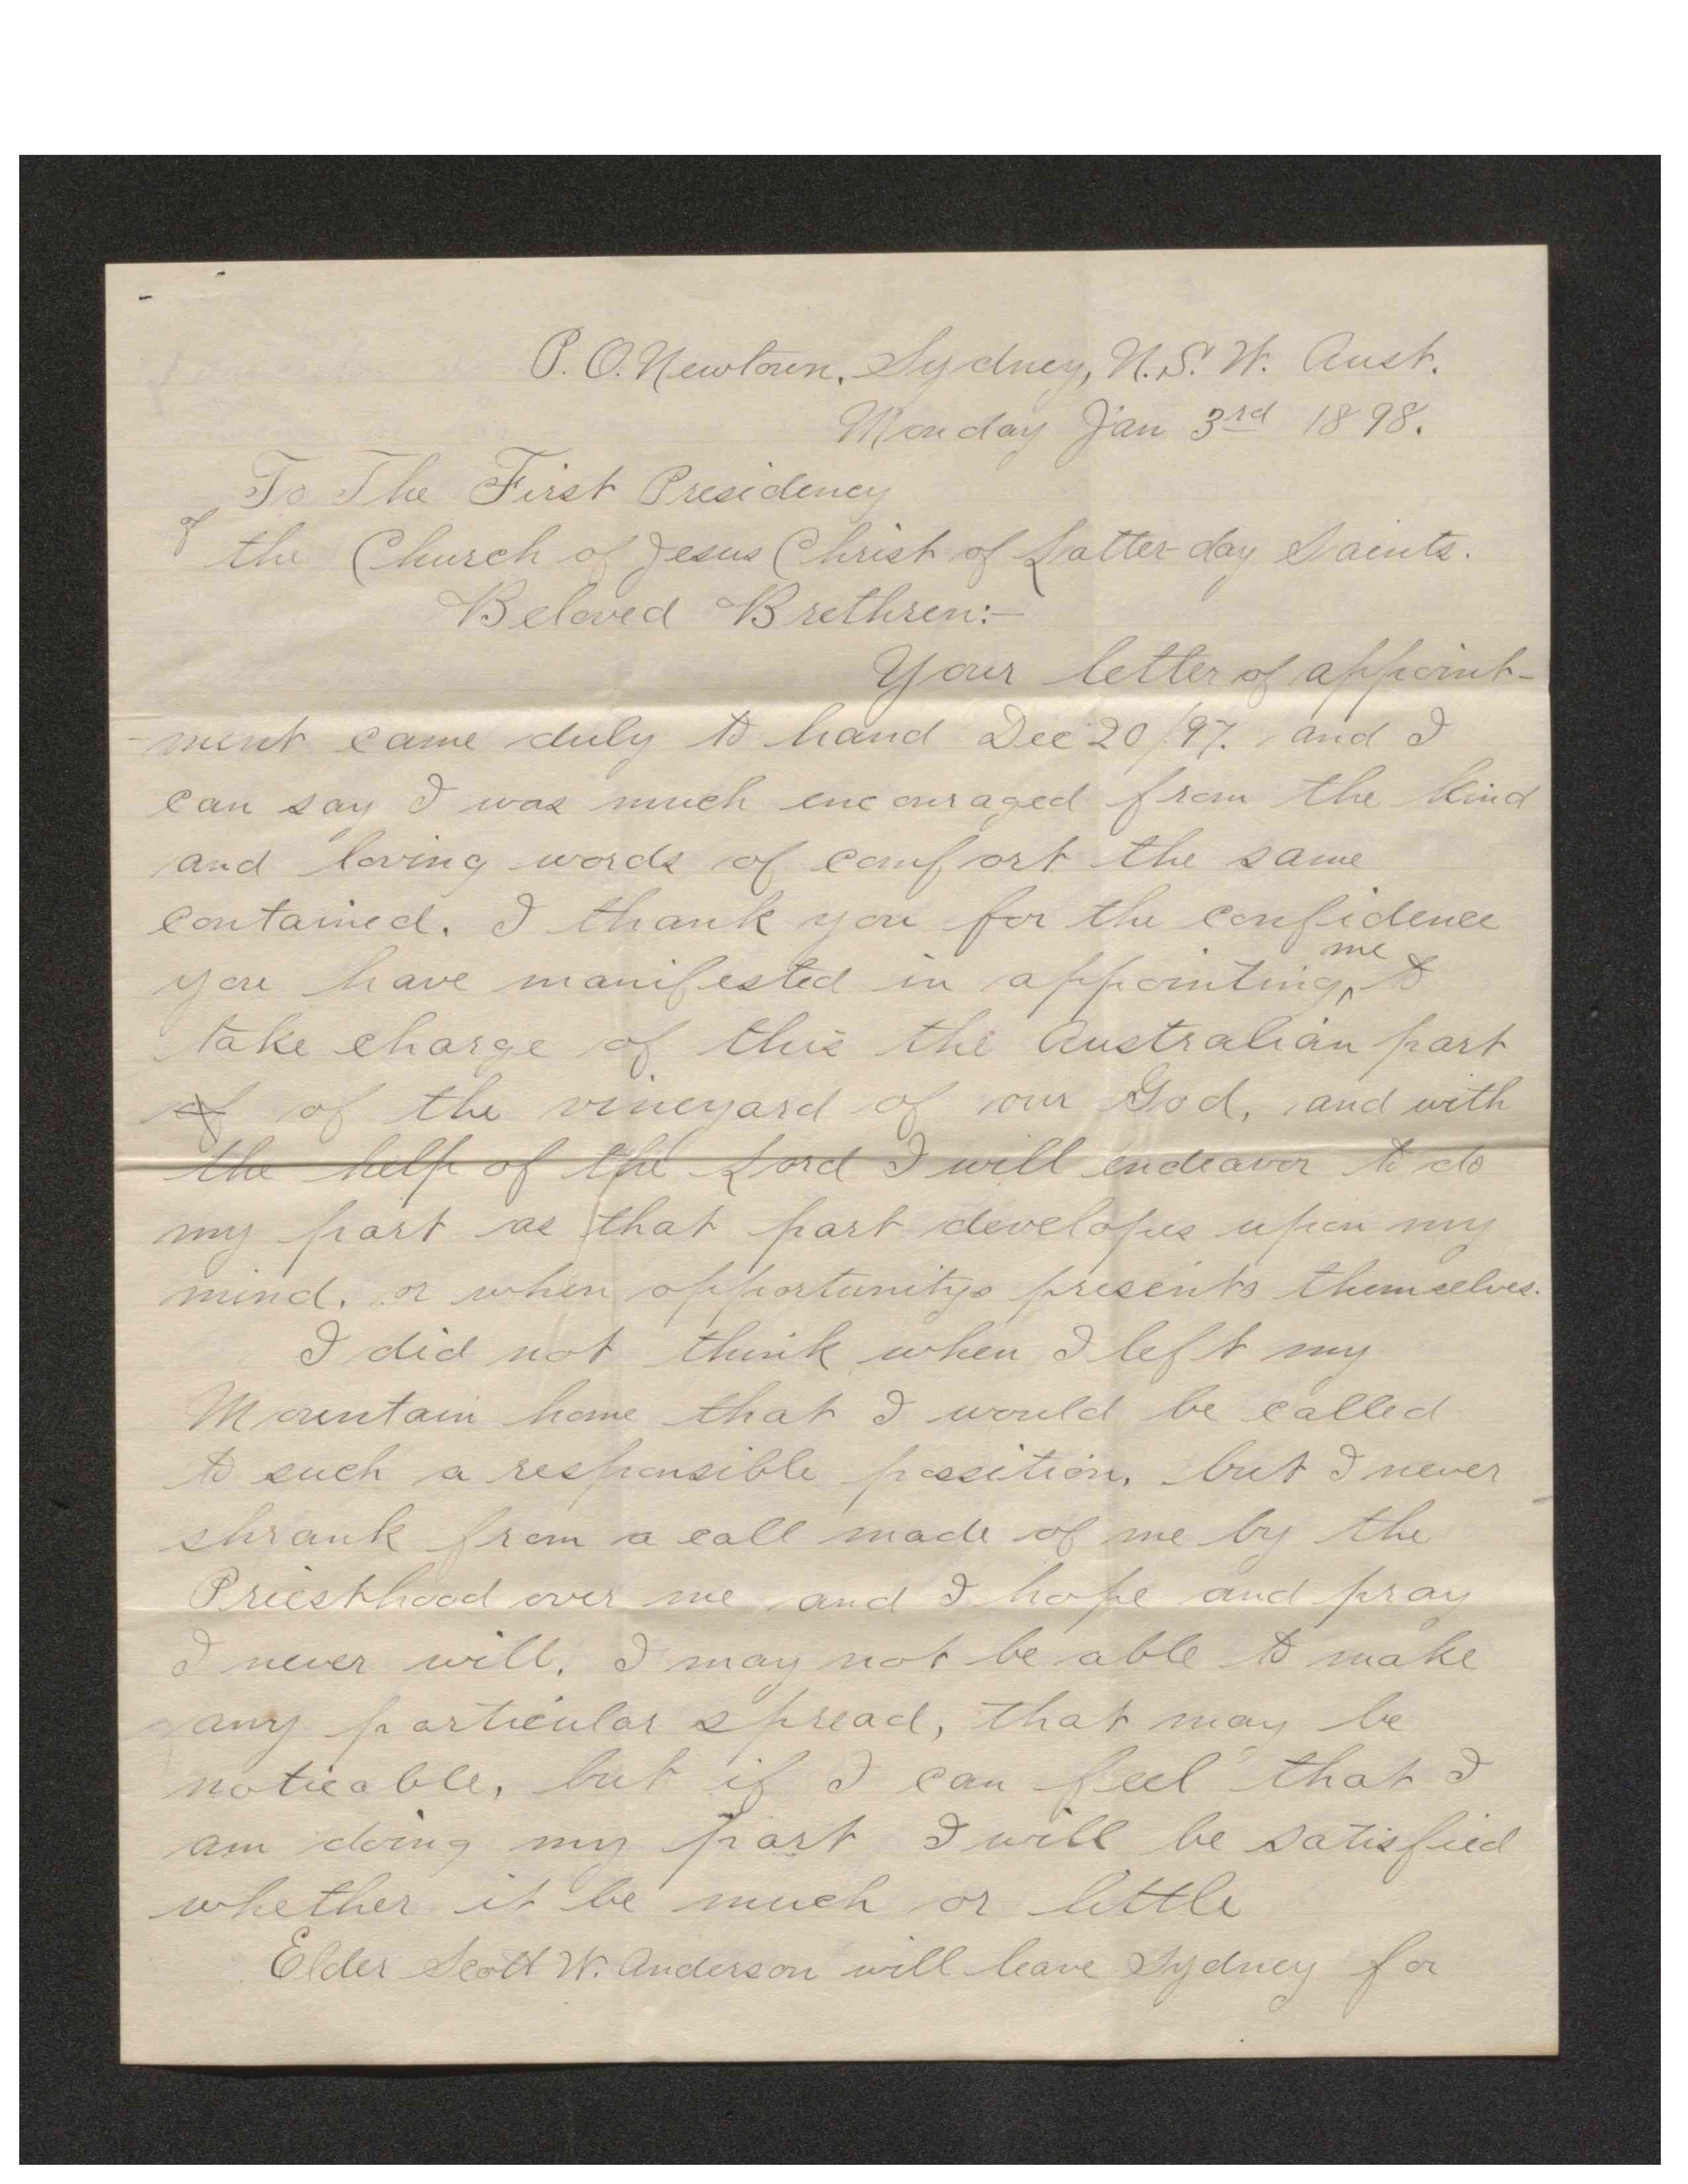 P. O. Newtown, Sydney, N.S.W. Aust.
Monday Jan 3rd 1898.
To The First Presidency
of the Church of Jesus Christ of Latter-day Saints.
Beloved Brethren:-
Your letter of appoint-
ment came duly to hand Dec 20/97. and I
can say I was much encouraged from the kind
and loving words of comfort the same
contained. I thank you for the confidence
you have manifested in appointing me to
take charge of this the Australian part
of of the vineyard of our God, and with
the help of the Lord I will endeavor to do
my part as that part developes upon my
mind. or when opportunitys presents themselves.
I did not think when I left my
Mountain home that I would be called
to such a responsible possition, but I never
shrank from a call made of me by the
Priesthood over me and I hope and pray
I never will. I may not be able to make
any particular spread, that may be
noticable, but if I can feel that I
am doing my part I will be satisfied
whether it be much or little
Elder Scott W. Anderson will leave Sydney for